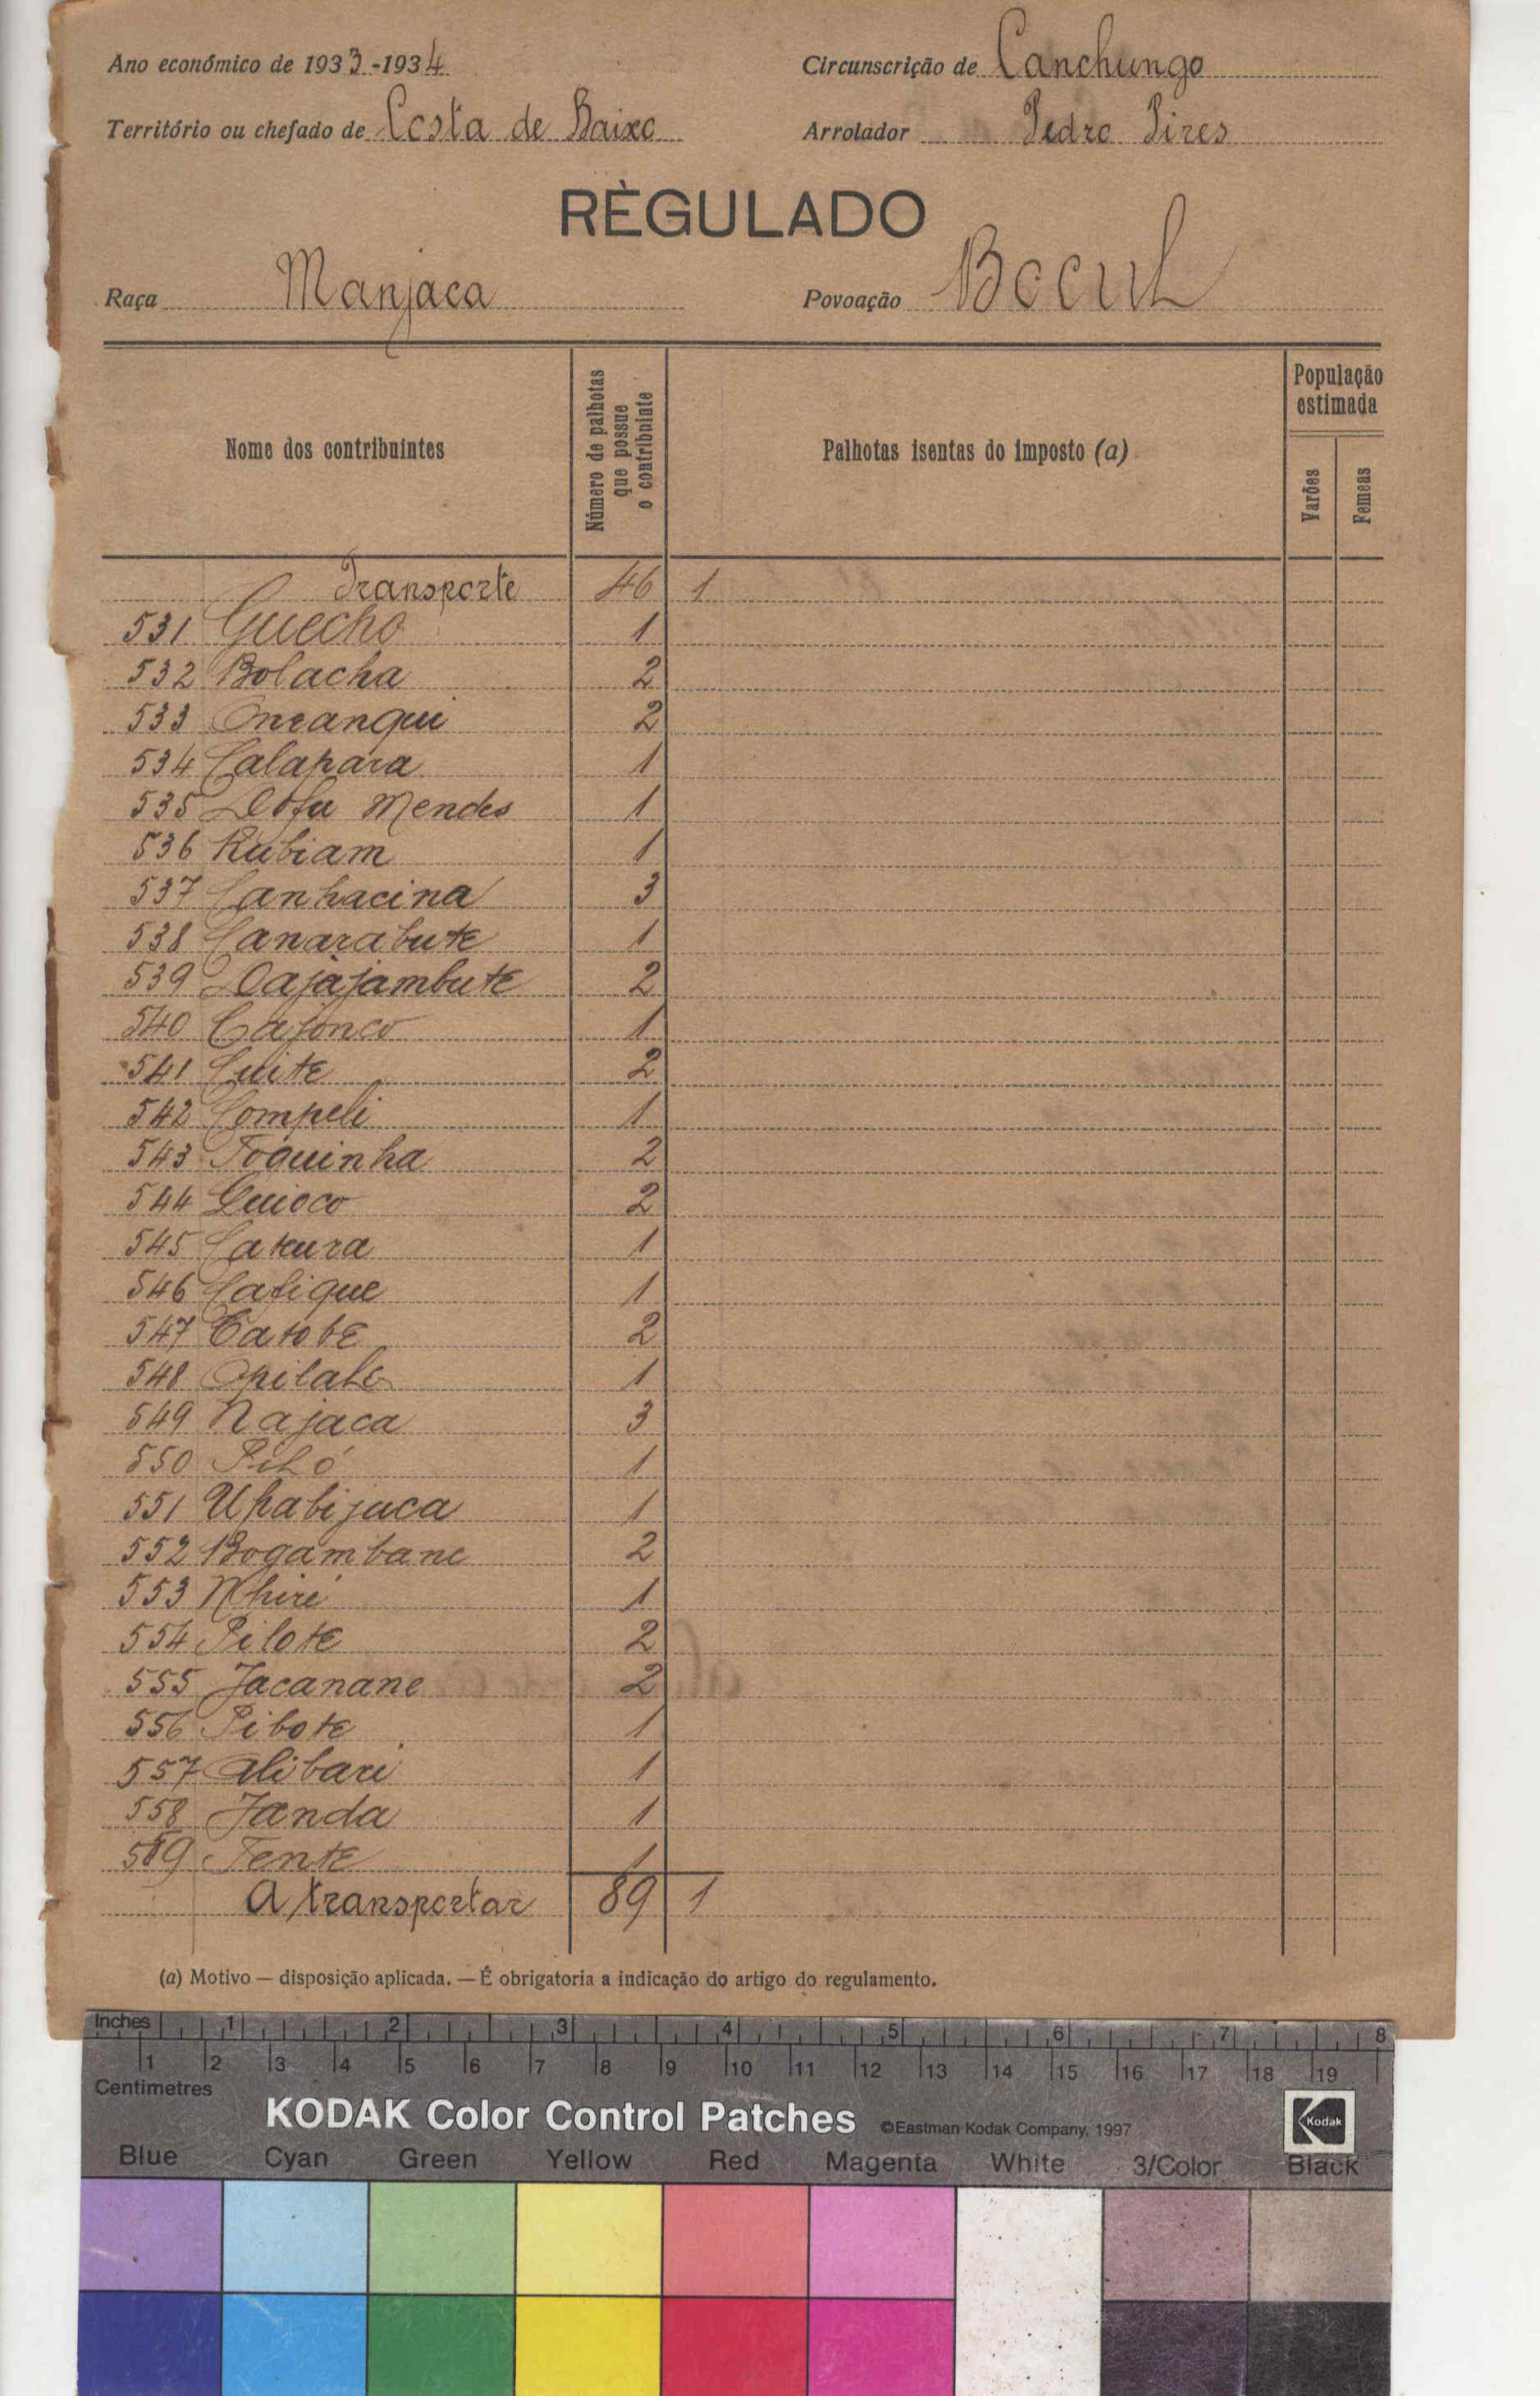 Ano económico de 1933-1934
Circunscrição de Canchungo
Território ou chefado de Costa de Baixo
Arrolador Pedro Pires
RÈGULADO
Raça Manjaca
Povoação Bocul
Nome dos contribuintes
Número de palhotas que possue o contribuinte
Palhotas isentas do imposto (a)
População estimada
Varões
Femeas
Transporte 46 1
531 Guecho 1
532 Bolacha 2
533 Oncanqui 2
534 Calapara 1
535 Dofu Mendes 1
536 Rubiam 1
537 Canhacina 3
538 Canarabute 1
539 Dajàjambute 2
540 Cajonco 1
541 Cuite 2
542 Compeli 1
543 Toquinha 2
544 Guioco 2
545 Catura 1
546 Catique 1
547 Catobe 2
548 1
549 Najaca 3
550 1
551 Upabijaca 1
552 Bogambane 2
553 Nhiri 1
554 Pilote 2
555 Jacanane 2
556 Pibote 1
557 Alibari 1
558 Janda 1
559 Tente 1
A transportar 89 1
(a) Motivo — disposição aplicada. — É obrigatoria a indicação do artigo do regulamento.
Inches 1 2 3 4 5 6 7 8
1 2 3 4 5 6 7 8 9 10 11 12 13 14 15 16 17 18 19
Centimetres
KODAK Color Control Patches ©Eastman Kodak Company, 1997 Kodak
Blue Cyan Green Yellow Red Magenta White 3/Color Black